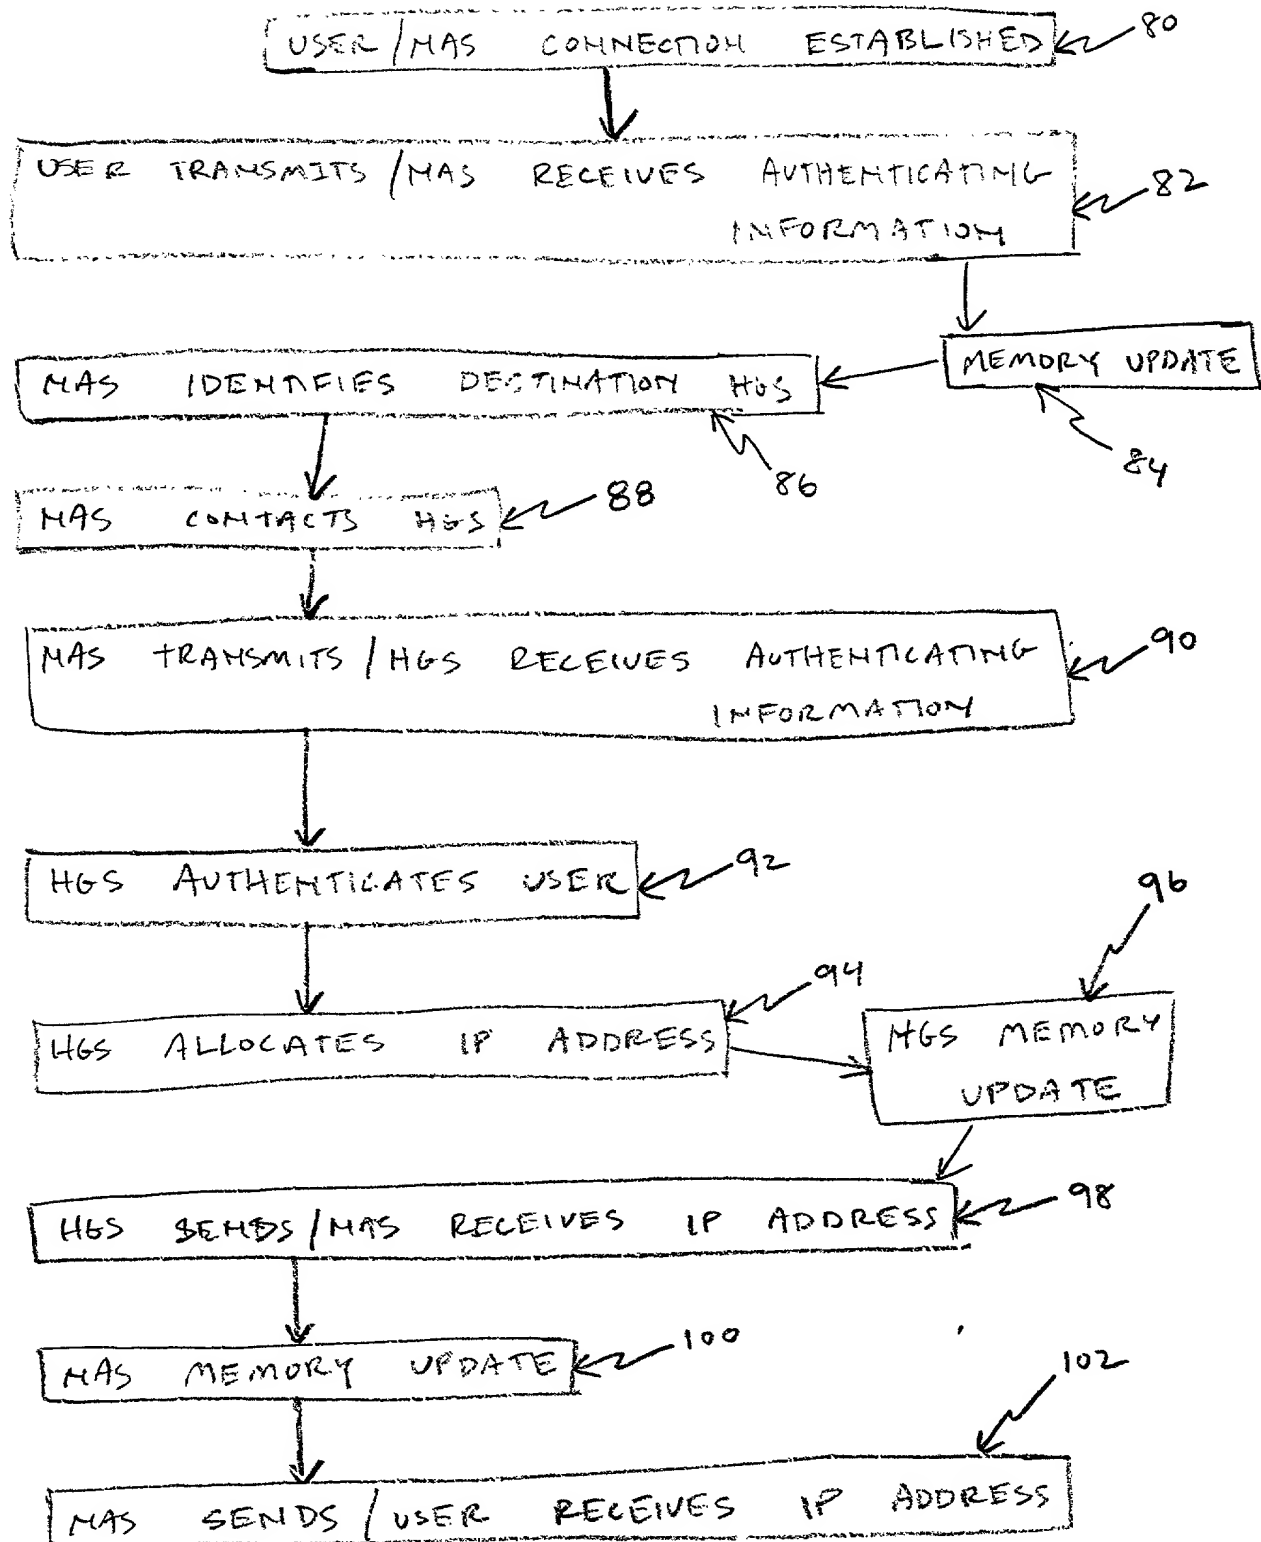 USER/MAS CONNECTION ESTABLISHED
80
USER TRANSMITS/MAS RECEIVES AUTHENTICATING
INFORMATION
82
MEMORY UPDATE
84
MAS IDENTIFIES DESTINATION HGS
86
MAS CONTACTS HGS
88
MAS TRANSMITS/HGS RECEIVES AUTHENTICATING
INFORMATION
90
HGS AUTHENTICATES USER
92
HGS ALLOCATES IP ADDRESS
94
96
HGS MEMORY
UPDATE
HGS SENDS/MAS RECEIVES IP ADDRESS
98
MAS MEMORY UPDATE
100
102
MAS SENDS/USER RECEIVES IP ADDRESS